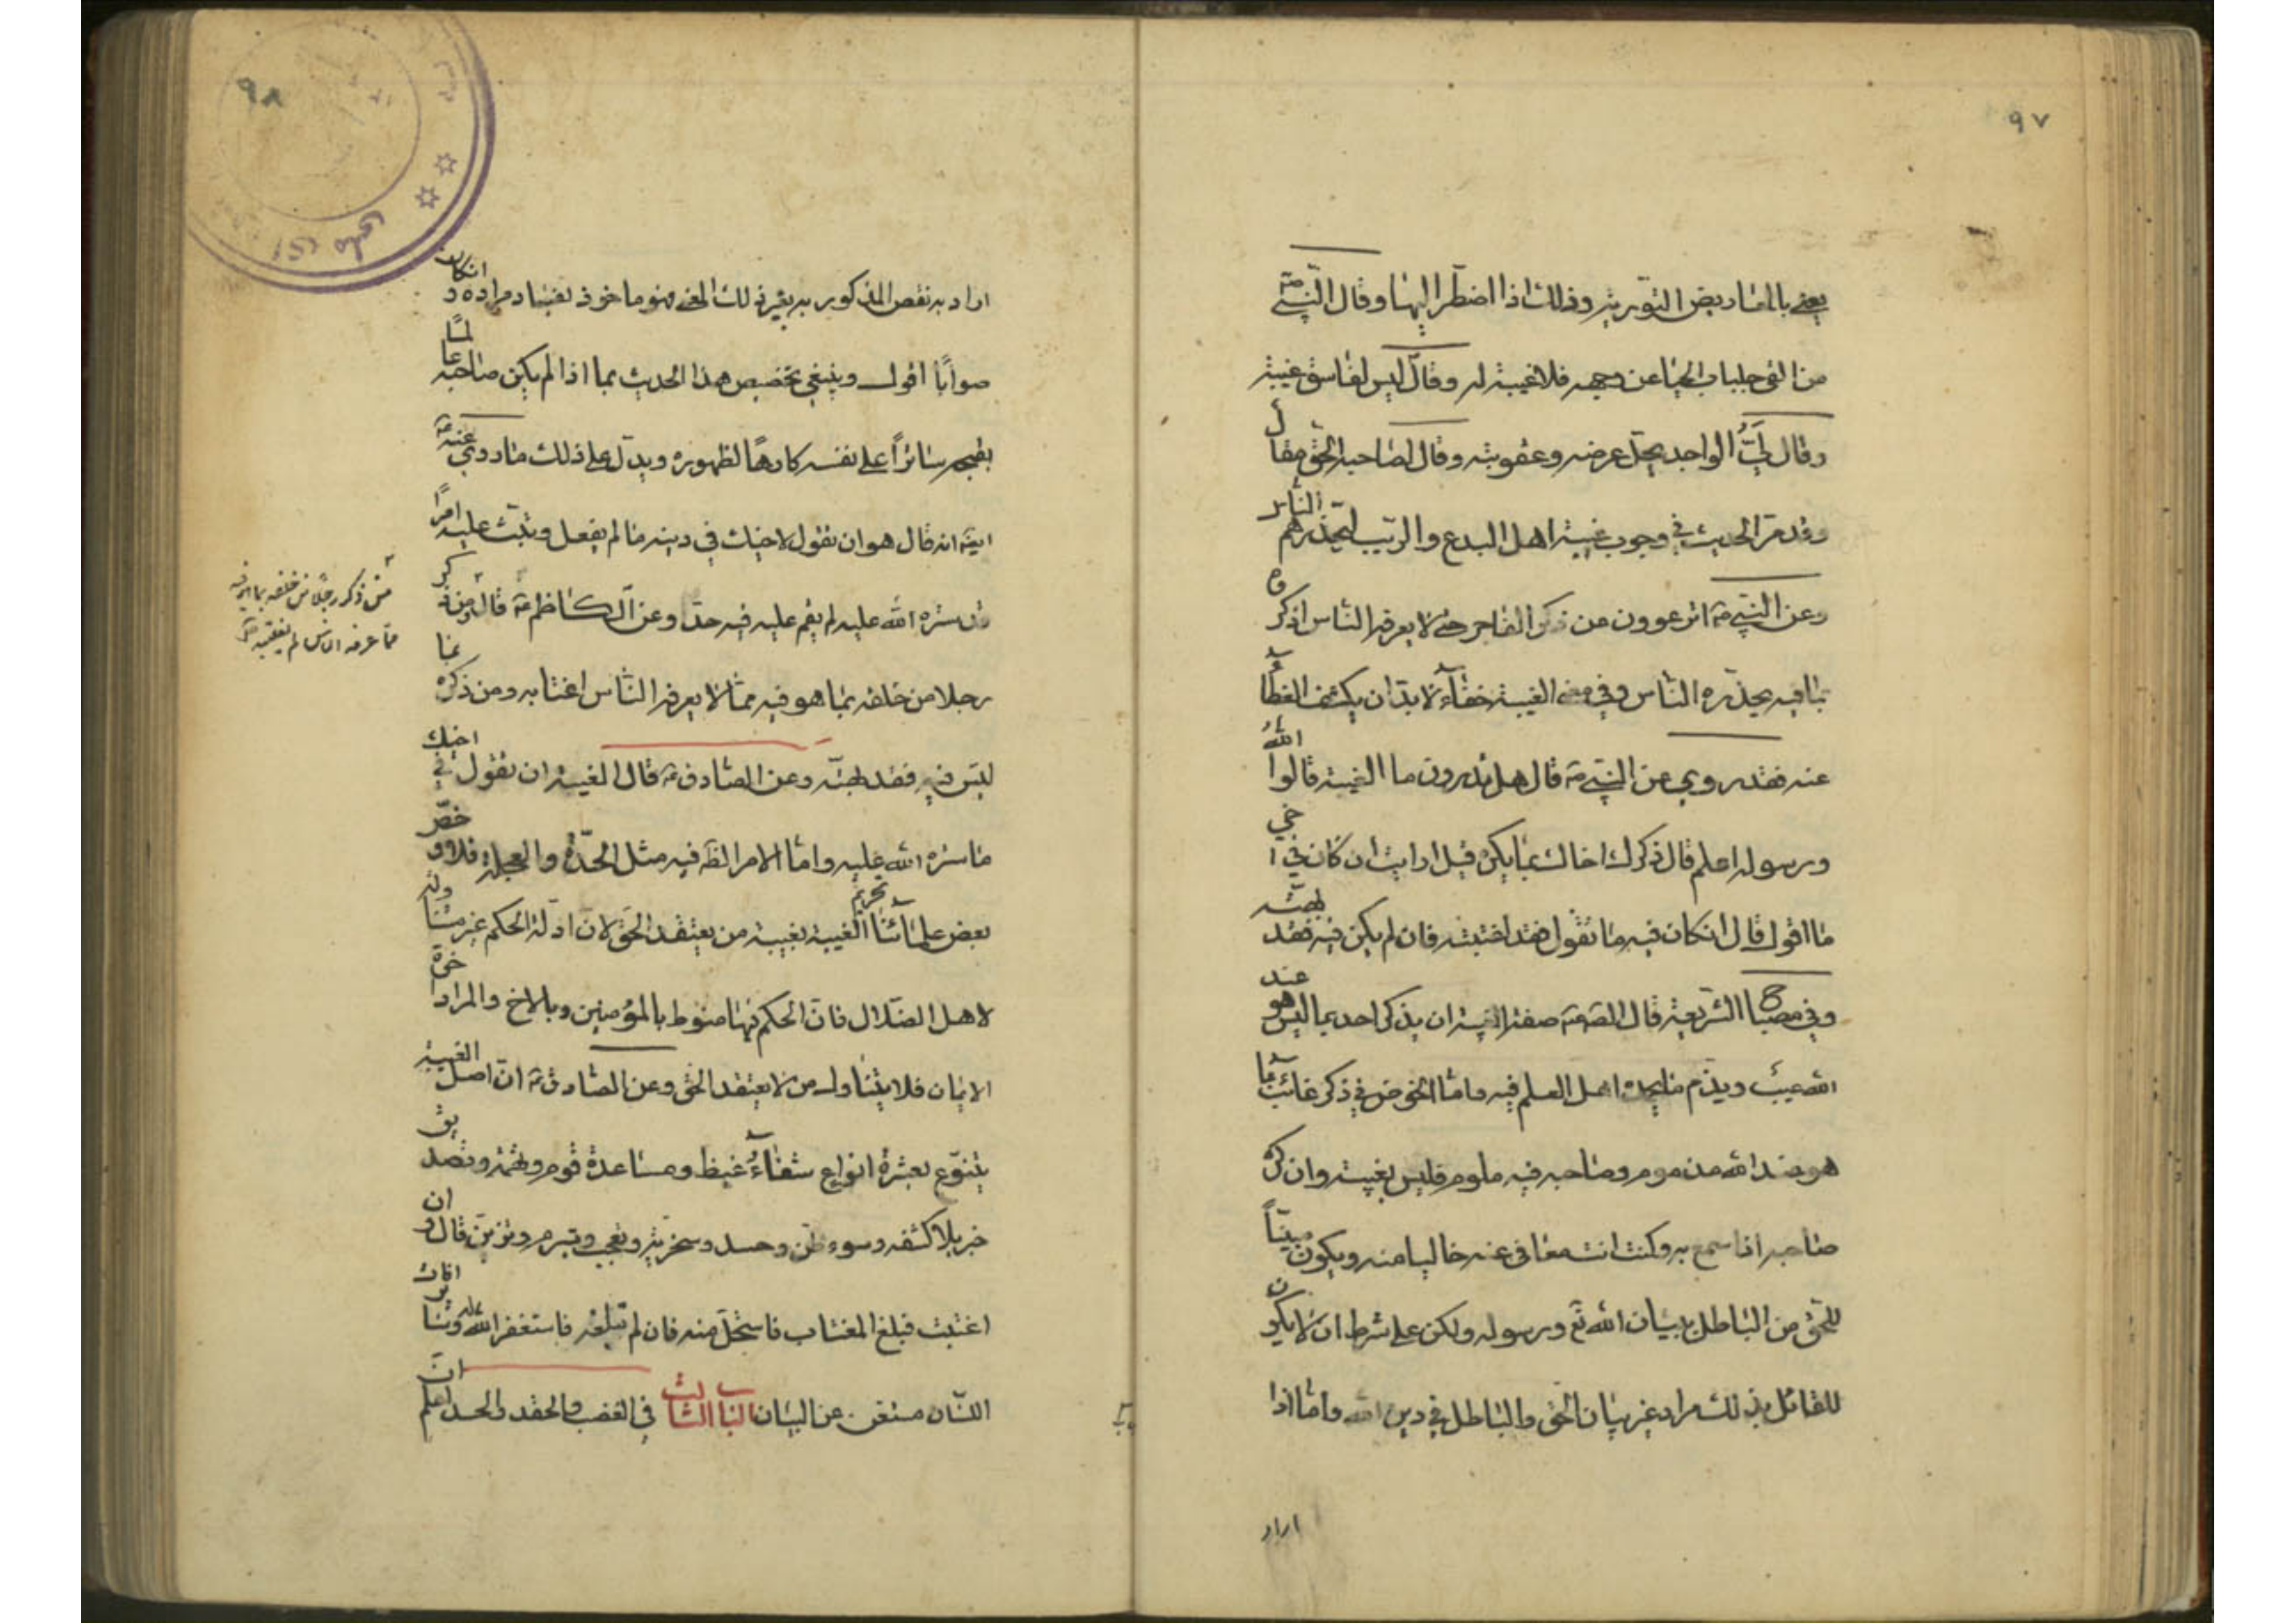 ٩٧
يعني بالمعاريض التورية وذلك اذا اضطر اليها وقال النبي ص
من القى جلباب الحيا عن وجهه فلا غيبة له وقال ليس لفاسق غيبة
وقال ليّ الواجد يحل عرضه وعقوبته وقال لصاحب الحق مقال
وقد مر الحديث في وجوب غيبة اهل البدع والريب ليحذرهم الناس
وعن النبي ص اترعوون عن ذكر الفاجر حتى لا يعرفه الناس اذكروه
بما فيه يحذره الناس وفي معنى الغيبة خفاء لا بد ان يكشف الغطاء
عنه فقد روي عن النبي ص قال هل تدرون ما الغيبة قالوا الله
ورسوله اعلم قال ذكرك اخاك بما يكره قيل ارايت ان كان في اخي
ما اقول قال انكان فيه ما تقول فقد اغتبته فان لم يكن فيه فقد بهتّه
وفي مصباح الشريعة قال الص ع صفة الغيبة ان يذكر احد بما ليس هو عند
الله عيب ويذم ما يحمده اهل العلم فيه واما الخوض في ذكر غائب بما
هو عند الله مذموم وصاحبه فيه ملوم فليس بغيبة وان كره
صاحبه اذا سمع به وكنت انت معافى عنه خاليا منه ويكون مبيّناً
للحق من الباطل ببيان الله تع ورسوله ولكن على شرط ان لا يكون
للقائل بذلك مراد غير بيان الحق والباطل في دين الله واما اذا
اراد
٩٨
اراد به نقص المذكور به بغير ذلك المعنى فهو ماخوذ بفساد مراده وانكان
صواباً اقول وينبغي تخصيص هذا الحديث بما اذا لم يكن صاحبه عالما
بقبحه ساترا على نفسه كارها لظهوره ويدل على ذلك ما روي عنه ع
ايضا انه قال هو ان تقول لاخيك في دينه ما لم يفعل وتبث عليه امرا
قد ستره الله عليه لم يقم عليه فيه حد وعن الكاظم ع قال من ذكر
رجلا من خلفه بما هو فيه مما لا يعرفه الناس اغتابه ومن ذكره بما
ليس فيه فقد بهته وعن الصادق ع قال الغيبة ان تقول في اخيك
ما ستره الله عليه واما الامر الظ فيه مثل الحدّة والعجلة فلا وخصّ
بعض علمائنا تحريم الغيبة بغيبة من يعتقد الحق لان ادلة الحكم غير متناولة
لاهل الضلال فان الحكم فيها منوط بالمؤمنين وبالاخ والمراد اخوة
الايمان فلا يتناول من لا يعتقد الحق وعن الصادق ع ان اصل الغيبة
يتنوع بعشرة انواع شفاء غيظ ومساعدة قوم وتهمة وتصديق
خبر بلا كشفه وسوء ظن وحسد وسخرية وتعجب وتبرم وتزين قال وان
اغتبت فبلغ المغتاب فاستحل منه فان لم تبلغه فاستغفر الله له وسائر افات
اللسان مستغن عن البيان الباب الثالث في الغضب والحقد والحسد اعلم ان
من ذكر رجلا من خلفه بما هو فيه
مما عرفه الناس لم يغتبه